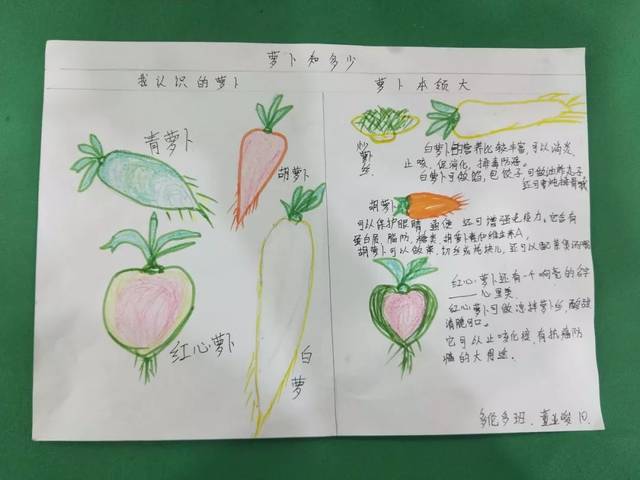 萝卜知多少
我认识的萝卜
萝卜本领大
青萝卜
胡萝卜
红心萝卜
白萝
炒萝卜丝
白萝卜的营养比较丰富,可以消炎
止咳,促消化,排毒防癌。
白萝卜可做馅,包饺子可做油炸丸子
还可炖排骨哦
胡萝卜
可以保护眼睛 通便 还可增强免疫力。它含有
蛋白质、脂肪、糖类、胡萝卜素和维生素A,
胡萝卜可以做菜,切丝或花块儿,还可以
红心萝卜还有一个响亮的名字
——心里美
红心萝卜可做凉拌萝卜丝,酸甜
清脆可口。
它可以止咳化痰,有抗癌防
癌的大用途。
多伦多班
10